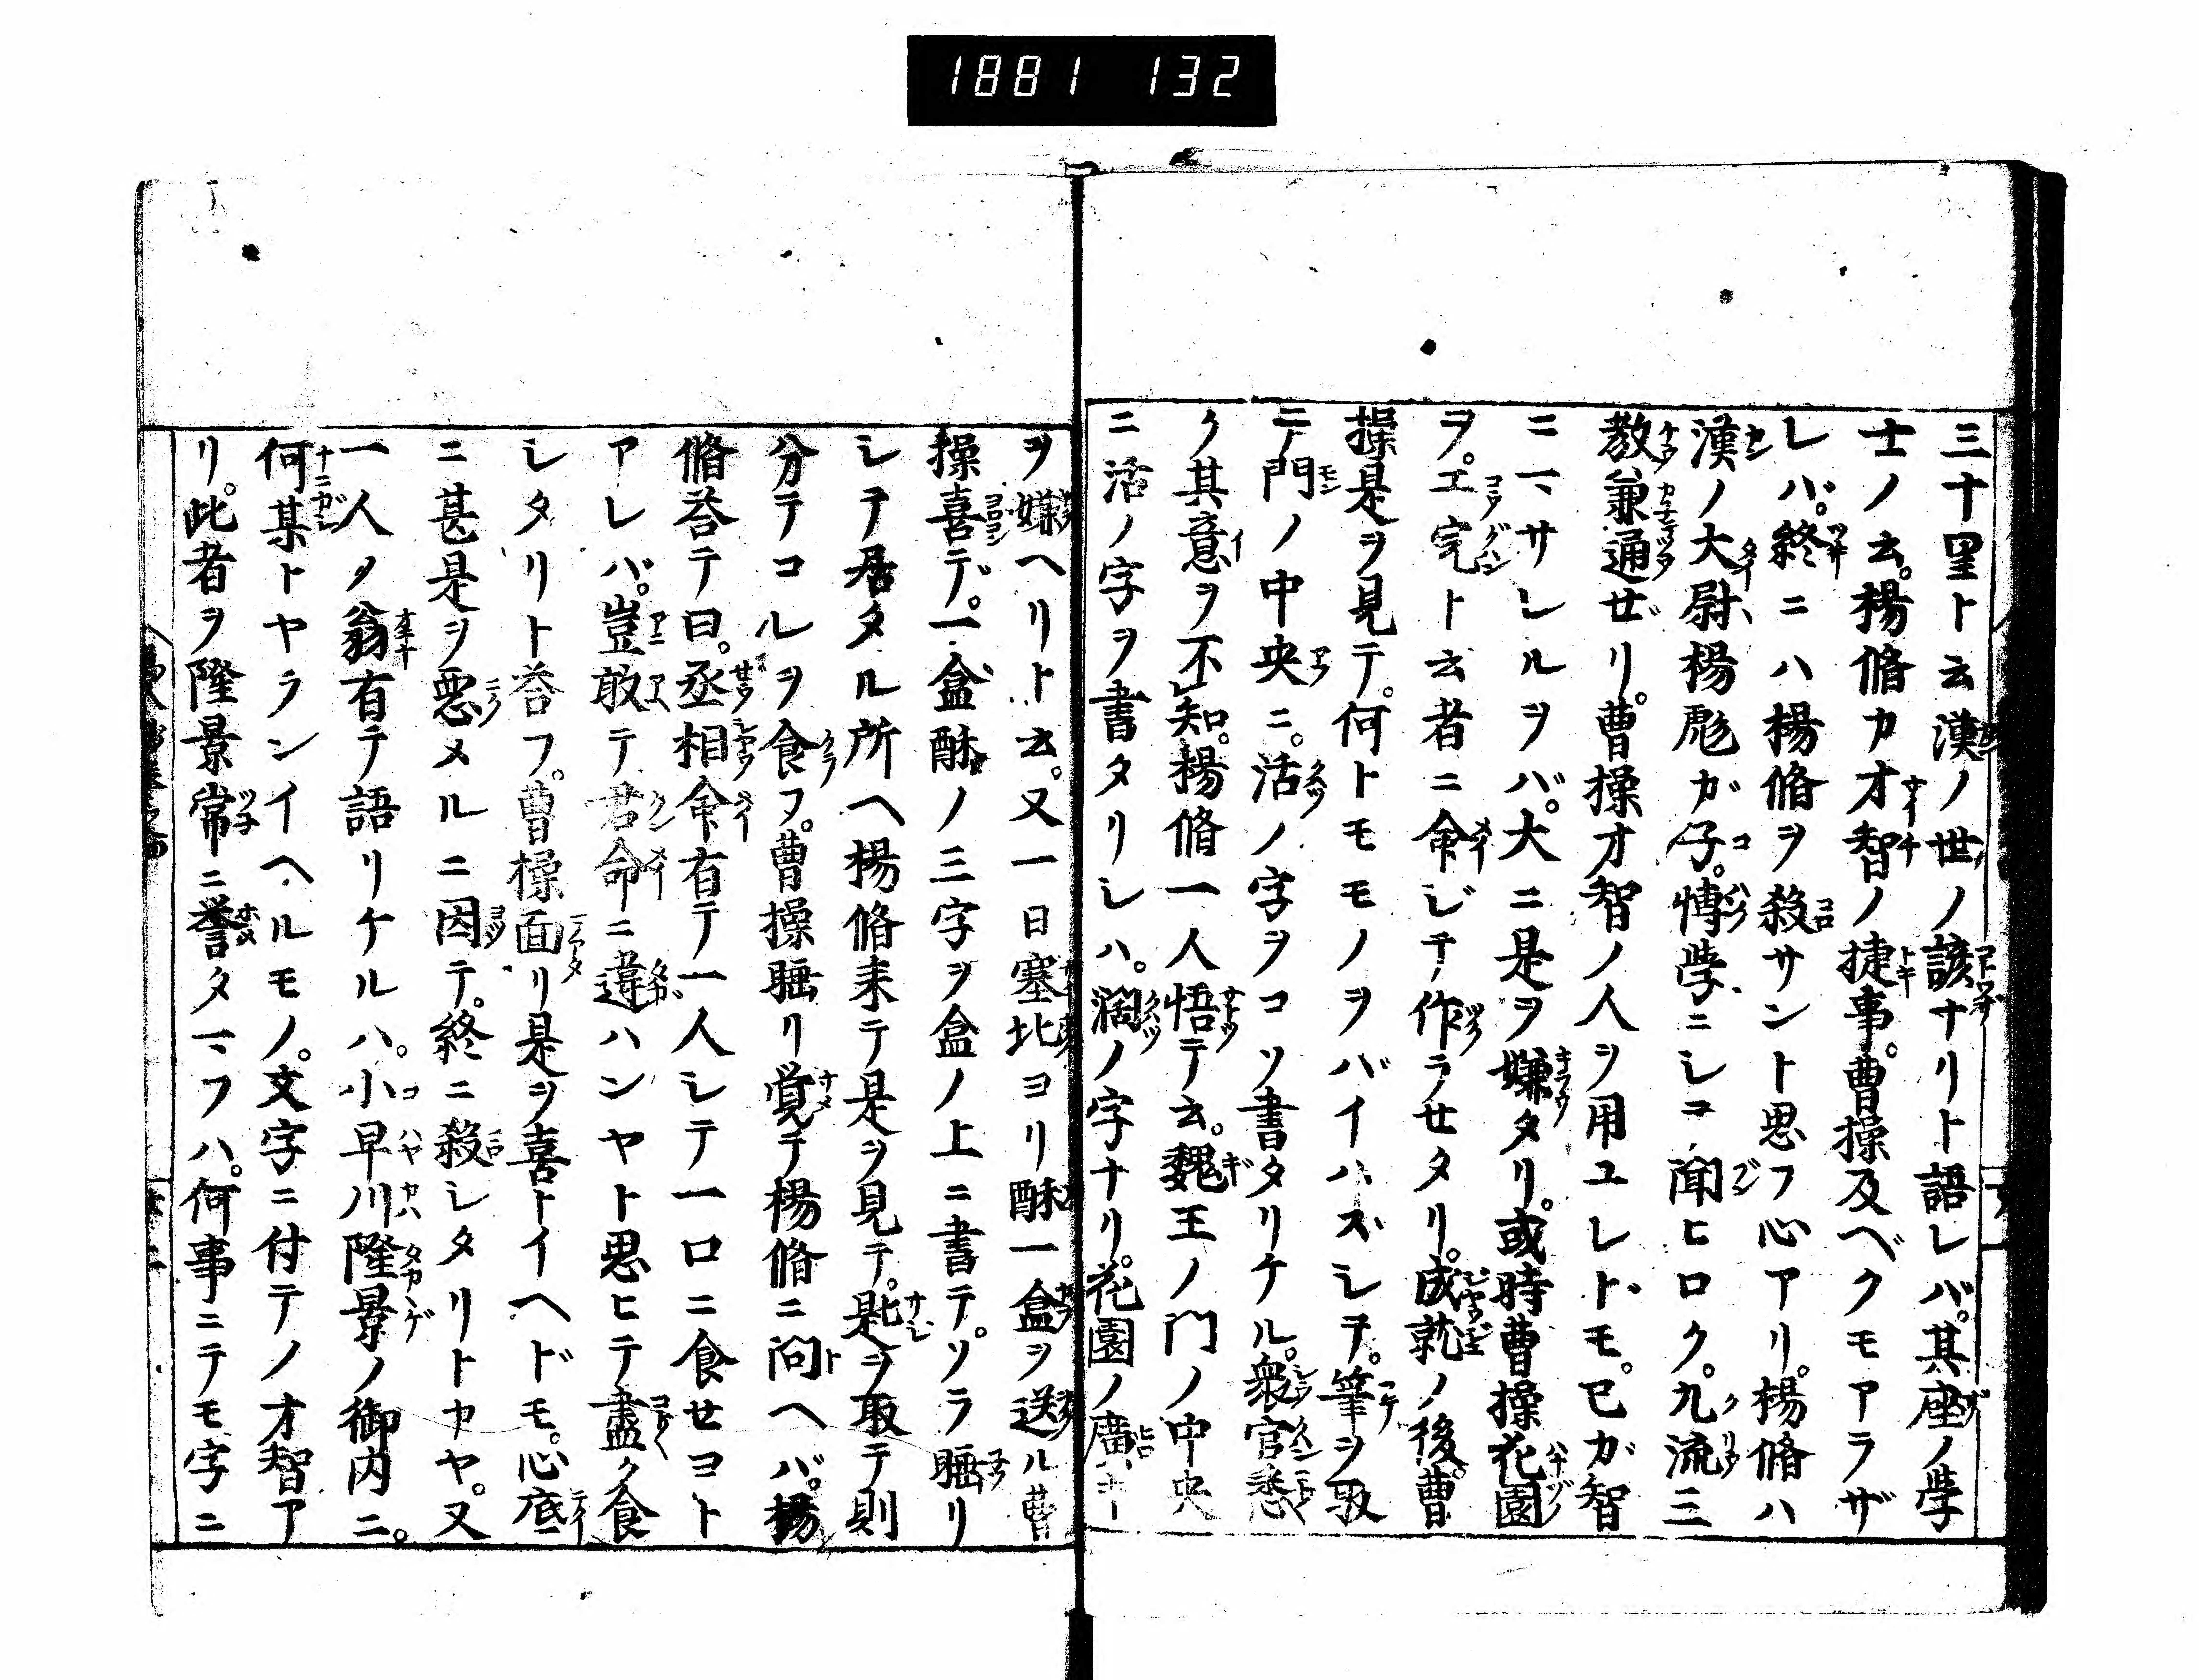 1881 132
三十里ト云漢ノ世ノ諺ナリト語レバ。其座ノ学
士ノ云。楊脩カ才智ノ捷事。曹操及ベクモアラザ
レバ。終ニハ楊脩ヲ殺サント思フ心アリ。楊脩ハ
漢ノ大尉楊彪ガ子。博学ニシコ聞ヒロク。九流三
教兼通ぜリ。曹操才智ノ人ヲ用ユレトモ。已ガ智
ニ一サレルヲバ。大ニ是ヲ嫌タリ。或時曹操花園
ヲ。工完ト云者ニ命ジテ作ラせタリ。成就ノ後。曹
操是ヲ見テ。何トモモノヲバイハズシテ。筆ヲ取
テ門ノ中央ニ。活ノ字ヲコソ書タリケル。衆官悉
ク其意ヲ不知。楊脩一人悟テ云。魏王ノ門ノ中央
ニ活ノ字ヲ書タリシハ。濶ノ字ナリ。花園ノ廣キ
ヲ嫌ヘリト云。又一日塞北ヨリ酥一盒ヲ送ル曹
操喜デ。一盒酥ノ三字ヲ盒ノ上ニ書テ。ソラ睡リ
シテ居タル所ヘ楊脩来テ是ヲ見テ。匙ヲ取テ則
分テコレヲ食フ。曹操睡リ覚テ楊脩ニ問ヘバ。楊
脩荅テ曰。丞相命有テ一人シテ一口ニ食せヨト
アレバ。豈敢テ君命ニ違ハンヤト思ヒテ盡ク食
シタリト荅フ。曹操面リ是ヲ喜トイヘドモ。心底
ニ甚是ヲ悪メルニ因テ。終ニ殺シタリトカヤ。又
一人ノ翁有テ語リケルハ。小早川隆景ノ御内ニ。
何某トヤランイヘルモノ。文字ニ付テノ才智ア
リ。此者ヲ隆景常ニ誉タマフハ。何事ニテモ字ニ